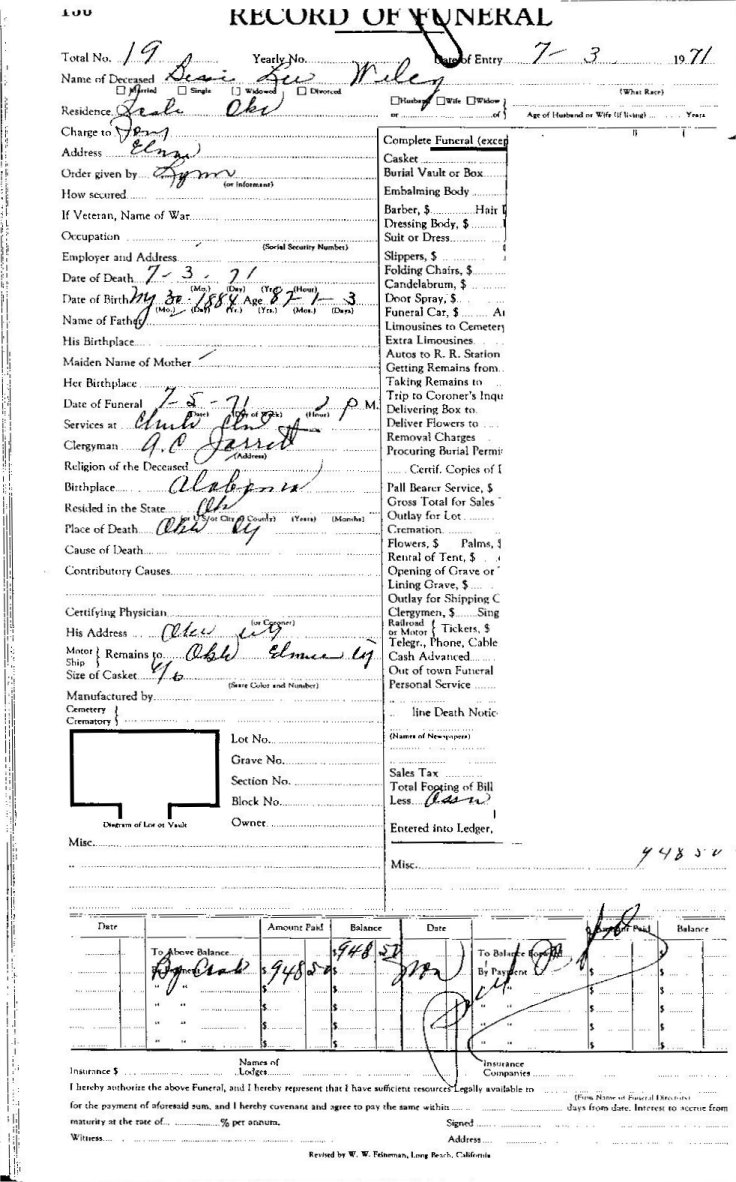 RECORD OF FUNERAL
Total No. 19 Yearly No. Date of Entry 7-3 1971
Name of Deceased Bessie Lee Wiley
☐ Married ☐ Single ☐ Widowed ☐ Divorced
(What Race)
Residence Okla
☐ Husband ☐ Wife ☐ Widow
or of
Age of Husband or Wife (if living) Years
Charge to
Address Elmer
Order given by
(or informant)
How secured
If Veteran, Name of War
Occupation
(Social Security Number)
Employer and Address
Date of Death 7-3-71
(Mo.) (Day) (Yr.) (Hour)
Date of Birth My 30-1884 Age 87-1-3
(Mo.) (Day) (Yr.) (Yrs.) (Mos.) (Days)
Name of Father
His Birthplace
Maiden Name of Mother
Her Birthplace
Date of Funeral 7-5-71 2 P M.
(Date) (Day of Week) (Hour)
Services at
Clergyman A.C Jarrett
(Address)
Religion of the Deceased
Birthplace Alabama
Resided in the State
(or U S/or City & County) (Years) (Months)
Place of Death Okla
Cause of Death
Contributory Causes
Certifying Physician
(or Coroner)
His Address
Motor Ship } Remains to
Size of Casket 6/6
(State Color and Number)
Manufactured by
Cemetery
Crematory
Lot No.
Grave No.
Section No.
Block No.
Owner
Diagram of Lot or Vault
Misc.
Complete Funeral (excep
Casket
Burial Vault or Box
Embalming Body
Barber, $ Hair
Dressing Body, $
Suit or Dress
Slippers, $
Folding Chairs, $
Candelabrum, $
Door Spray, $
Funeral Car, $
Limousines to Cemetery
Extra Limousines
Autos to R. R. Station
Getting Remains from
Taking Remains to
Trip to Coroner's Inqu
Delivering Box to
Deliver Flowers to
Removal Charges
Procuring Burial Permi
Certif. Copies of
Pall Bearer Service, $
Gross Total for Sales
Outlay for Lot
Cremation
Flowers, $ Palms, $
Rental of Tent, $
Opening of Grave or
Lining Grave, $
Outlay for Shipping C
Clergymen, $ Sing
Railroad or Motor { Tickets, $
Telegr., Phone, Cable
Cash Advanced
Out of town Funeral
Personal Service
line Death Notic
(Names of Newspapers)
Sales Tax
Total Footing of Bill
Less Assn
Entered into Ledger,
948 50
Misc.
Date Amount Paid Balance Date Amount Paid Balance
To Above Balance $948 50 To Balance Forw
$948 50 $ By Payment $ $
" " $ $ " " $ $
" " $ $ " " $ $
" " $ $ " " $ $
Insurance $ Names of Lodges Insurance Companies
I hereby authorize the above Funeral, and I hereby represent that I have sufficient resources Legally available to
(Firm Name of Funeral Directors)
for the payment of aforesaid sum, and I hereby covenant and agree to pay the same within days from date. Interest to accrue from
maturity at the rate of % per annum. Signed
Witness Address
Revised by W. W. Frineman, Long Beach, California